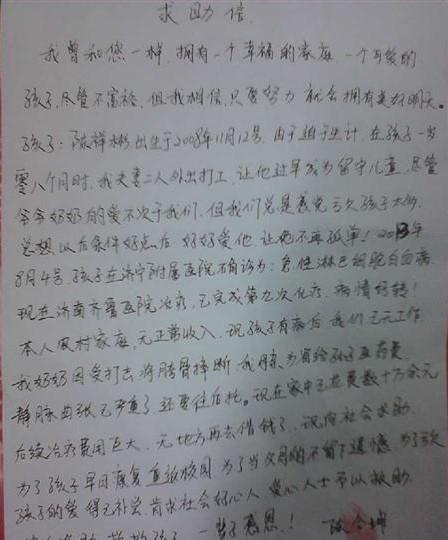 求助信
我曾和您一样,拥有一个幸福的家庭 一个可爱的
孩子,尽管不富裕,但我相信,只要努力 就会拥有美好明天。
孩子:陈祥彬,出生于2008年11月12号,由于迫于生计,在孩子一岁
零八个月时,我夫妻二人外出打工,让他过早成为留守儿童,尽管
爷爷奶奶的爱不次于我们,但我们总是感觉亏欠孩子太多,
总想以后条件好点后 好好爱他,让他不再孤单!2013年
8月4号,孩子在济宁附属医院确诊为:急性淋巴细胞白血病
现在济南齐鲁医院治疗,已完成第九次化疗,病情好转!
本人农村家庭,无正常收入,现孩子有病后 我们已无工作
我奶奶因受打击将胯骨摔断,我母亲为省给孩子医药费,
静脉曲张已严重了还要往后托。现在家中已花费数十万余元
后续治疗费用巨大,无地方再去借钱了,现向社会求助
为了孩子早日康复 重返校园 为了当父母的不留下遗憾 为了欠
孩子的爱 得已补尝,肯求社会好心人 爱心人士予以救助
孩子 一辈子感恩!